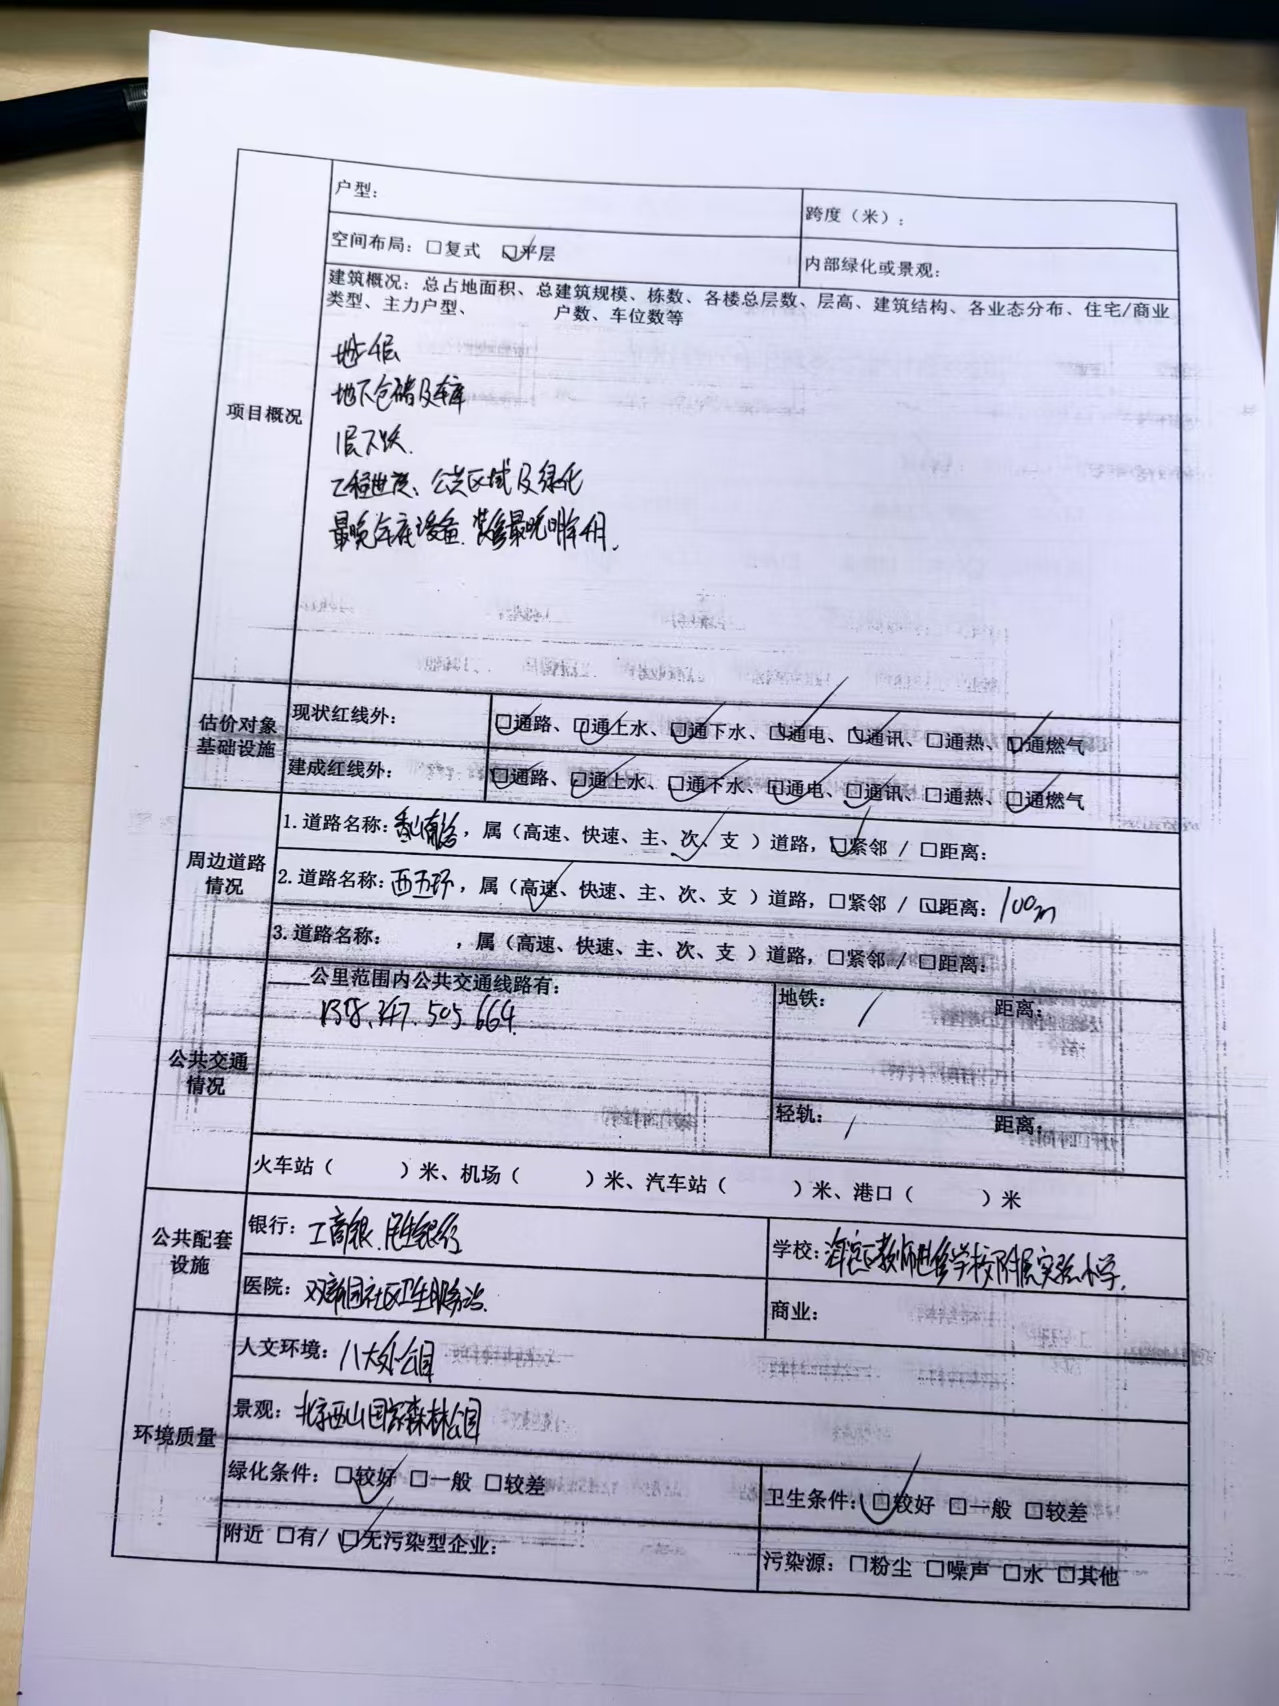 户型：
跨度（米）：
空间布局：□复式 ☑平层
内部绿化或景观：
建筑概况：总占地面积、总建筑规模、栋数、各楼总层数、层高、建筑结构、各业态分布、住宅/商业
类型、主力户型、 户数、车位数等
项目概况
地下仓储及车库
1层下跃.
工程进度、公共区域及绿化
估价对象
基础设施
现状红线外：
☑通路、☑通上水、☑通下水、☑通电、☑通讯、□通热、☑通燃气
建成红线外：
☑通路、☑通上水、☑通下水、☑通电、☑通讯、□通热、☑通燃气
周边道路
情况
1.道路名称：香山南路，属（高速、快速、主、次✓、支 ）道路，☑紧邻 / □距离：
2.道路名称：西五环，属（高速✓、快速、主、次、支 ）道路，□紧邻 / ☑距离：100m
3.道路名称： ，属（高速、快速、主、次、支 ）道路，□紧邻 / □距离：
公共交通
情况
公里范围内公共交通线路有：
347、505、664
地铁： / 距离：
轻轨： / 距离：
火车站（ ）米、机场（ ）米、汽车站（ ）米、港口（ ）米
公共配套
设施
银行：工商银、民生银行
学校：海淀区教师进修学校附属实验小学.
医院：双新园社区卫生服务站
商业：
环境质量
人文环境：八大处公园
景观：北京西山国家森林公园
绿化条件：☑较好 □一般 □较差
卫生条件：☑较好 □一般 □较差
附近 □有/ ☑无污染型企业：
污染源：□粉尘 □噪声 □水 □其他